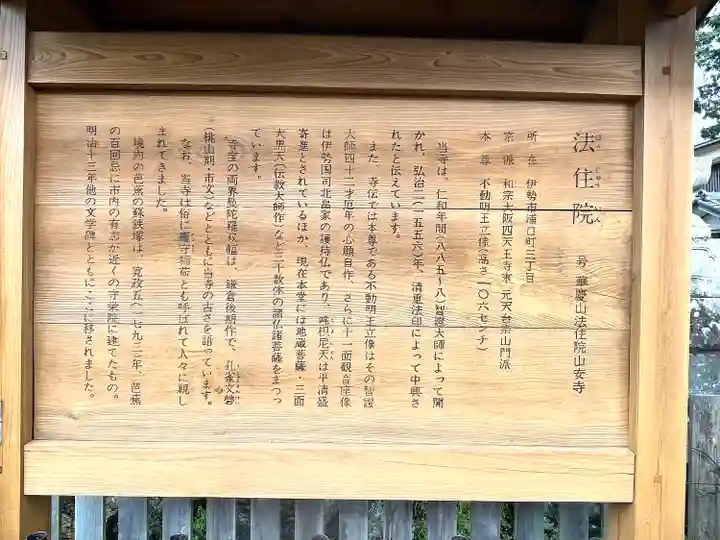 法住院
ほう じゅう いん
号 華慶山法住院山安寺
所在 伊勢市浦口町三丁目
宗派 和宗大阪四天王寺末 元天台宗山門派
本尊 不動明王立像(高さ一〇六センチ)
当寺は、仁和年間(八八五〜八)智證大師によって開
かれ、弘治二(一五五六)年、清重法印によって中興さ
れたと伝えています。
また、寺伝では本尊である不動明王立像はその智證
大師四十二才厄年の心願自作、さらに十一面観音座像
は伊勢国司北畠家の護持仏であり、咤枳尼天は平清盛
寄進とされているほか、現在本堂には地蔵菩薩・三面
大黒天(伝教大師作)など三十数体の諸仏諸菩薩をまつっ
ています。
寺宝の両界曼陀羅双幅は、鎌倉後期作で、孔雀文磬
(桃山期・市文)などとともに当寺の古さを語っています。
なお、当寺は俗に 寺稲荷とも呼ばれて人々に親し
まれてきました。
境内の芭蕉の蘇鉄塚は、寛政五(一七九三)年、芭蕉
の百回忌に市内の有志が近くの守栄院に建てたもの。
明治十三年他の文学碑とともにここに移されました。